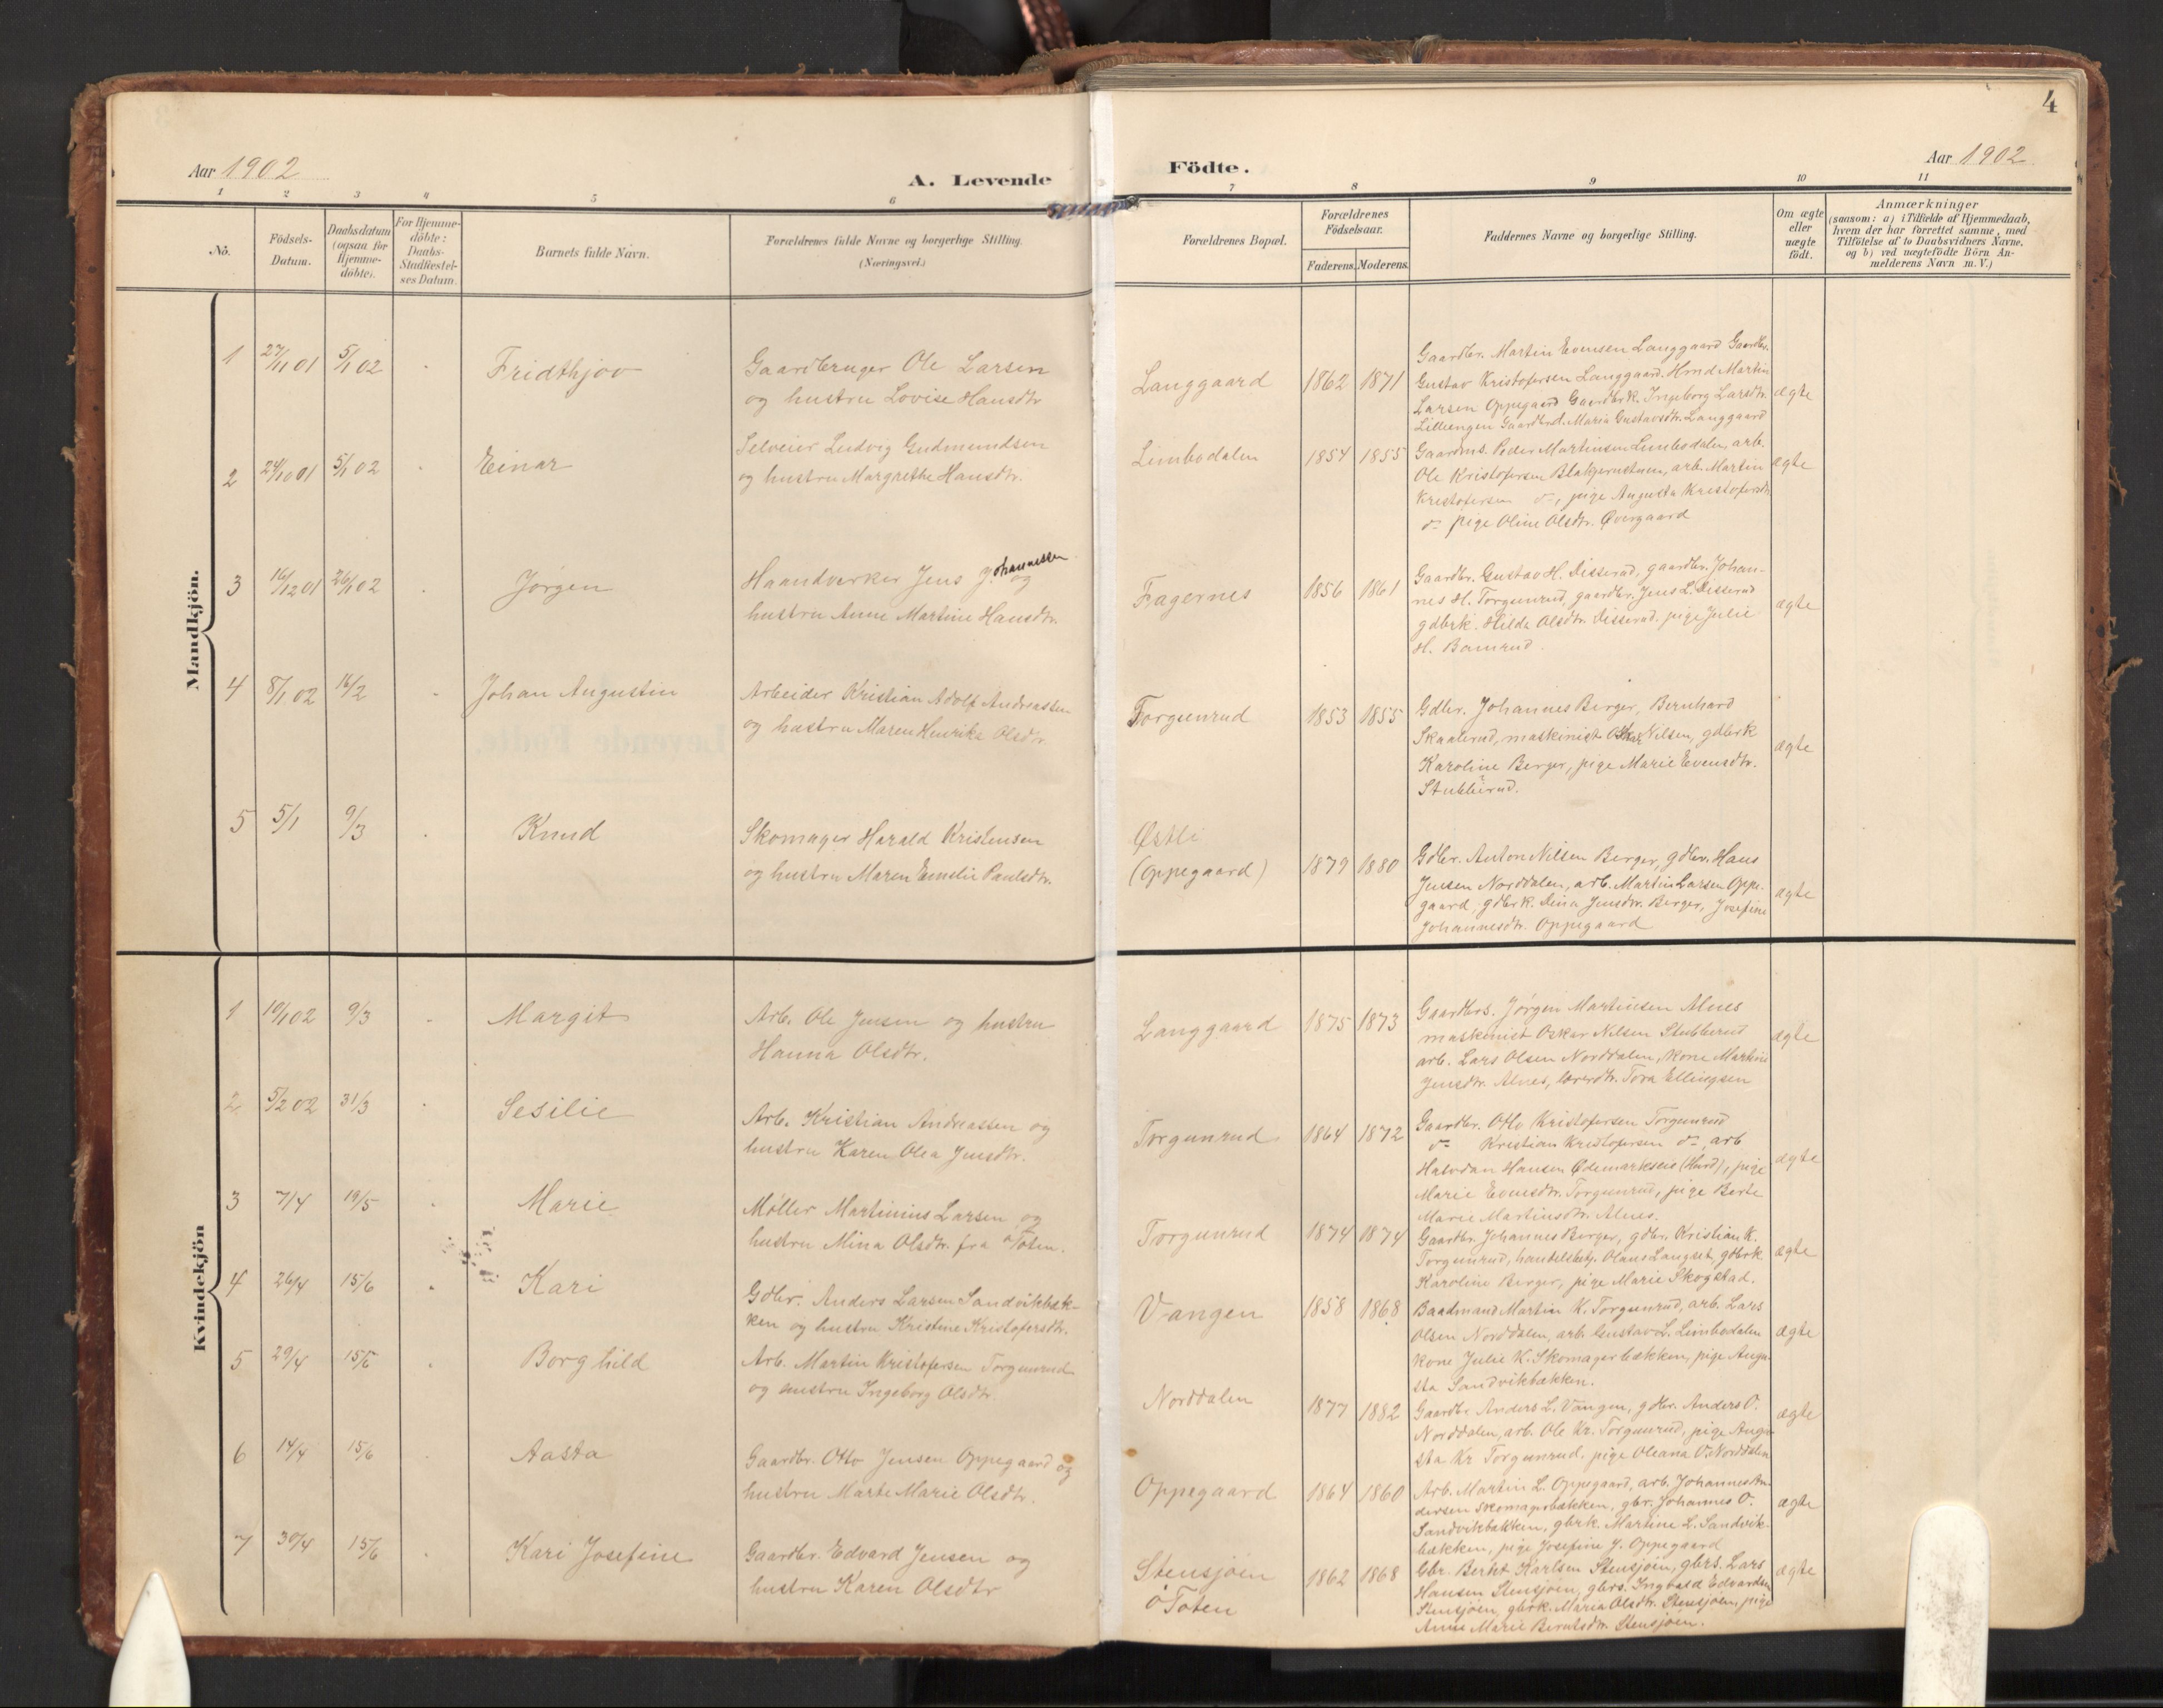 4
Aar 1902
A. Levende
Födte.
Aar 1902
1 2 3 4 5 6
7 8 9 10 11
No.
Födsels-
Datum.
Daabsdatum
(ogsaa for
Hjemme-
döbte).
For Hjemme-
döbte:
Daabs-
Stadfæstel-
ses Datum.
Barnets fulde Navn.
Forældrenes fulde Navne og borgerlige Stilling.
(Næringsvei.)
Forældrenes Bopæl.
Forældrenes
Födselsaar.
Faderens.
Moderens.
Faddernes Navne og borgerlige Stilling.
Om ægte
eller
uægte
födt.
Anmærkninger
(saasom: a) i Tilfælde af Hjemmedaab,
hvem der har forrettet samme, med
Tilföielse af to Daabsvidners Navne.
og b) ved uægtefödte Börn An-
melderens Navn m. V.)
Mandkjön.
1 27/11 01 5/1 02 Fridthjov
Gaardbruger Ole Larsen
og hustru Lovise Hansdtr
Langgaard 1862 1871
Gaardbr. Martin Evensen Langgaard Gaardbr.
Gustav Kristofersen Langgaard. Hmd Martin
Larsen Oppegaard Gaardbrk. Ingeborg Larsdtr.
Lillesengen Gaardbrd. Maria Gustavsdtr. Langgaard
ægte
2 24/10 01 5/1 02 Einar
Selveier Ludvig Gudmundsen
og hustru Margrethe Hansdtr.
Limbodalen 1854 1855
Gaardms. Peder Martinsen Limbodalen, arb.
Ole Kristofersen arb. Martin
Kristofersen do, pige Augusta Kristofersdtr
do pige Oline Olsdtr. Øvergaard
ægte
3 16/12 01 26/1 02 Jørgen
Haandverker Jens Johannessen og
hustru Anne Martine Hansdtr.
Fagernes 1856 1861
Gaardbr. Gustav H. Disserud, gaardbr. Johan-
nes H. Torgunrud, gaardbr. Jens L. Disserud
gdbrk. Hilda Olsdtr. Disserud. pige Julie
H. Bamrud.
ægte
4 8/1 02 16/2 Johan Augustin
Arbeider Kristian Adolf Andreassen
og hustru Maren Henrike Olsdtr
Torgunrud 1853 1855
Gdbr. Johannes Berger, Bernhard
Skaalerud, maskinist Oskar Nilsen, gdbrk
Karoline Berger, pige Marie Evensdtr.
Stubberud.
ægte
5 5/1 9/3 Knud
Skomager Harald Kristensen
og hustru Maren Emelie Paulsdtr.
Østli
(Oppegaard) 1879 1880
Gdbr. Anton Nilsen Berger, gdbr. Hans
Jensen Norddalen, arb. Martin Larsen Oppe-
gaard, gdbrk. Dina Jensdtr. Berger, Josefine
Johannesdtr. Oppegaard
ægte
Kvindekjön
1 10/1 02 9/3 Margit
Arb. Ole Jensen og hustru
Hanna Olsdtr.
Langgaard 1875 1873
Gaardbrs. Jørgen Martinsen Alnes
maskinist Oskar Nilsen Stubberud
arb. Lars Olsen Norddalen, kone Martine
Jensdtr. Alnes, lærerdtr. Tora Ellingsen
ægte
2 5/2 02 31/3 Sesilie
Arb. Kristian Andreassen og
hustru Karen Olea Jensdtr.
Torgunrud 1864 1872
Gaardbr. Otto Kristofersen Torgunrud
do Kristian Kristofersen do, arb
Halvdan Hansen Ødemarkseie (Hurd), pige
Marie Evensdtr. Torgunrud, pige Berte
Marie Martinsdtr. Alnes.
ægte
3 7/4 19/5 Marie
Møller Martinius Larsen og
hustru Mina Olsdtr. fra Ø Toten.
Torgunrud 1874 1874
Gaardbr. Johannes Berger, gdbr. Kristian K.
Torgunrud, handelsbetj. Olaus Langset, gdbrk
Karoline Berger, pige Marie Skogstad.
ægte
4 26/4 15/6 Kari
Gdbr. Anders Larsen Sandvikbæk-
ken og hustru Kristine Kristofersdtr.
Vangen 1858 1868
Baadmand Martin K. Torgunrud, arb. Lars
Olsen Norddalen, arb. Gustav L. Limbodalen
kone Julie K. Skomagerbækken, pige Augu-
sta Sandvikbækken.
ægte
5 29/4 15/6 Borghild
Arb. Martin Kristofersen Torgunrud
og hustru Ingeborg Olsdtr.
Norddalen 1877 1882
Gaardbr Anders L. Vangen, gdbr. Anders O.
Norddalen, arb. Ole Kr. Torgunrud, pige Augu-
sta Kr Torgunrud, pige Oleana O. Norddalen
ægte
6 14/4 15/6 Aasta
Gaardbr. Otto Jensen Oppegaard og
hustru Marte Marie Olsdtr.
Oppegaard 1864 1860
Arb. Martin L. Oppegaard, arb. Johannes An-
dersen Skomagerbækken, gbr. Johannes O.
Sandvikbækken, gbrk. Martine L. Sandvik-
bækken, pige Josefine J. Oppegaard
ægte
7 30/4 15/6 Kari Josefine
Gaardbr. Edvard Jensen og
hustru Karen Olsdtr
Stensjøen
Ø Toten 1862 1868
Gbr. Berht Karlsen Stensjøen, gbrs. Lars
Hansen Stensjøen, gbrs. Ingvald Edvardsen
Stensjøen, gbrk. Maria Olsdtr. Stensjøen, pige
Anne Marie Berntsdtr. Stensjøen.
ægte